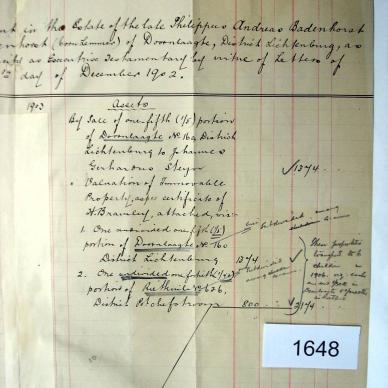 in the Estate of the late Philippus Andreas Badenhorst
(born Lemmer) of Doornlaagte, District Lichtenburg, as
as Executrix Testamentary by virtue of Letters of
day of December 1902.
1903 Assets
By Sale of one-fifth (1/5) portion
of Doornlaagte No 160 District
Lichtenburg to Johannes
Gerhardus Steyn 1374
" Valuation of Immovable
Property, as per certificate of
H. Bramley, attached, viz:
1. One undivided one fifth (1/5)
portion of Doornlaagte No 160
District Lichtenburg 1374
2. One undivided one fifth
portion of No 626,
District Potchefstroom 800 2174
These properties
transfd to 6
children in
1906.
1648